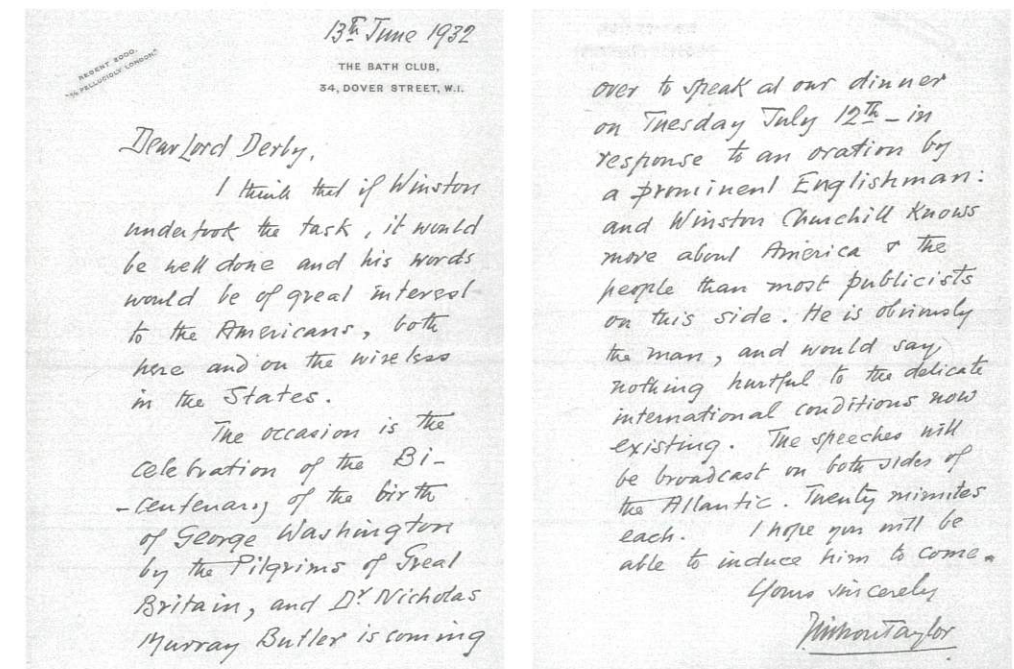 13th June 1932
REGENT 2000.
THE BATH CLUB,
34, DOVER STREET, W.1.
Dear Lord Derby,
I think that if Winston
undertook the task, it would
be well done and his words
would be of great interest
to the Americans, both
here and on the wireless
in the States.
The occasion is the
celebration of the Bi-
-centenary of the birth
of George Washington
by the Pilgrims of Great
Britain, and Dr Nicholas
Murray Butler is coming
over to speak at our dinner
on Tuesday July 12th - in
response to an oration by
a prominent Englishman:
and Winston Churchill knows
more about America & the
people than most publicists
on this side. He is obviously
the man, and would say
nothing hurtful to the delicate
international conditions now
existing. The speeches will
be broadcast on both sides of
the Atlantic. Twenty minutes
each. I hope you will be
able to induce him to come.
Yours sincerely
Taylor